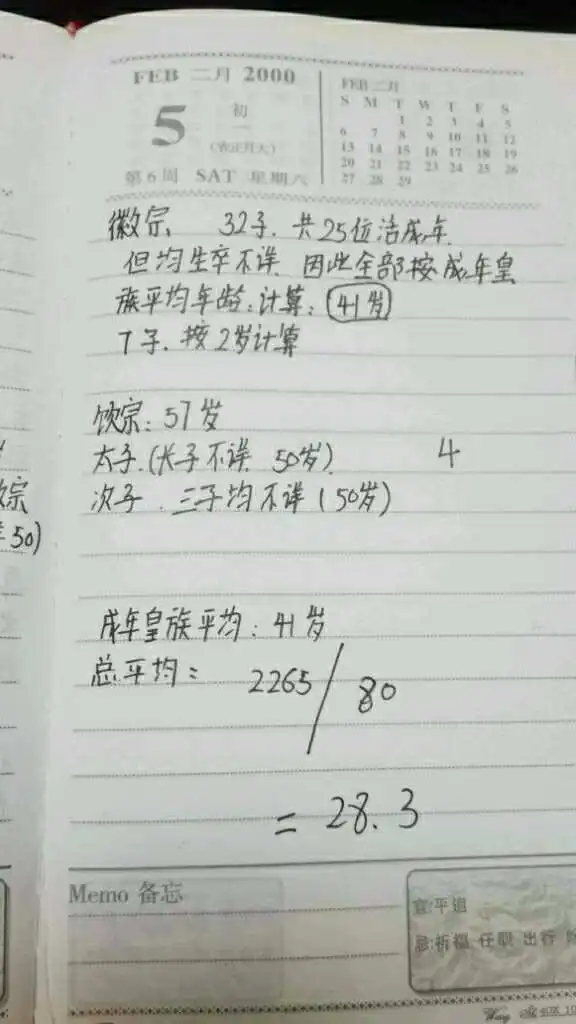 FEB 二月 2000
5
初
一
第6周 SAT 星期六
FEB 二月
S M T W T F S
1 2 3 4 5
6 7 8 9 10 11 12
13 14 15 16 17 18 19
20 21 22 23 24 25 26
27 28 29
徽宗 32子. 共25位活成年.
但均生卒不详 因此全部按成年皇
族平均年龄:计算: 41岁
7子. 按2岁计算
钦宗: 57岁
太子.(长子不详 50岁). 4
次子. 三子均不详(50岁)
宗
50)
成年皇族平均: 41岁
总平均: 2265/80
= 28.3
Memo 备忘
宜:平道
忌:祈福 任职 出行